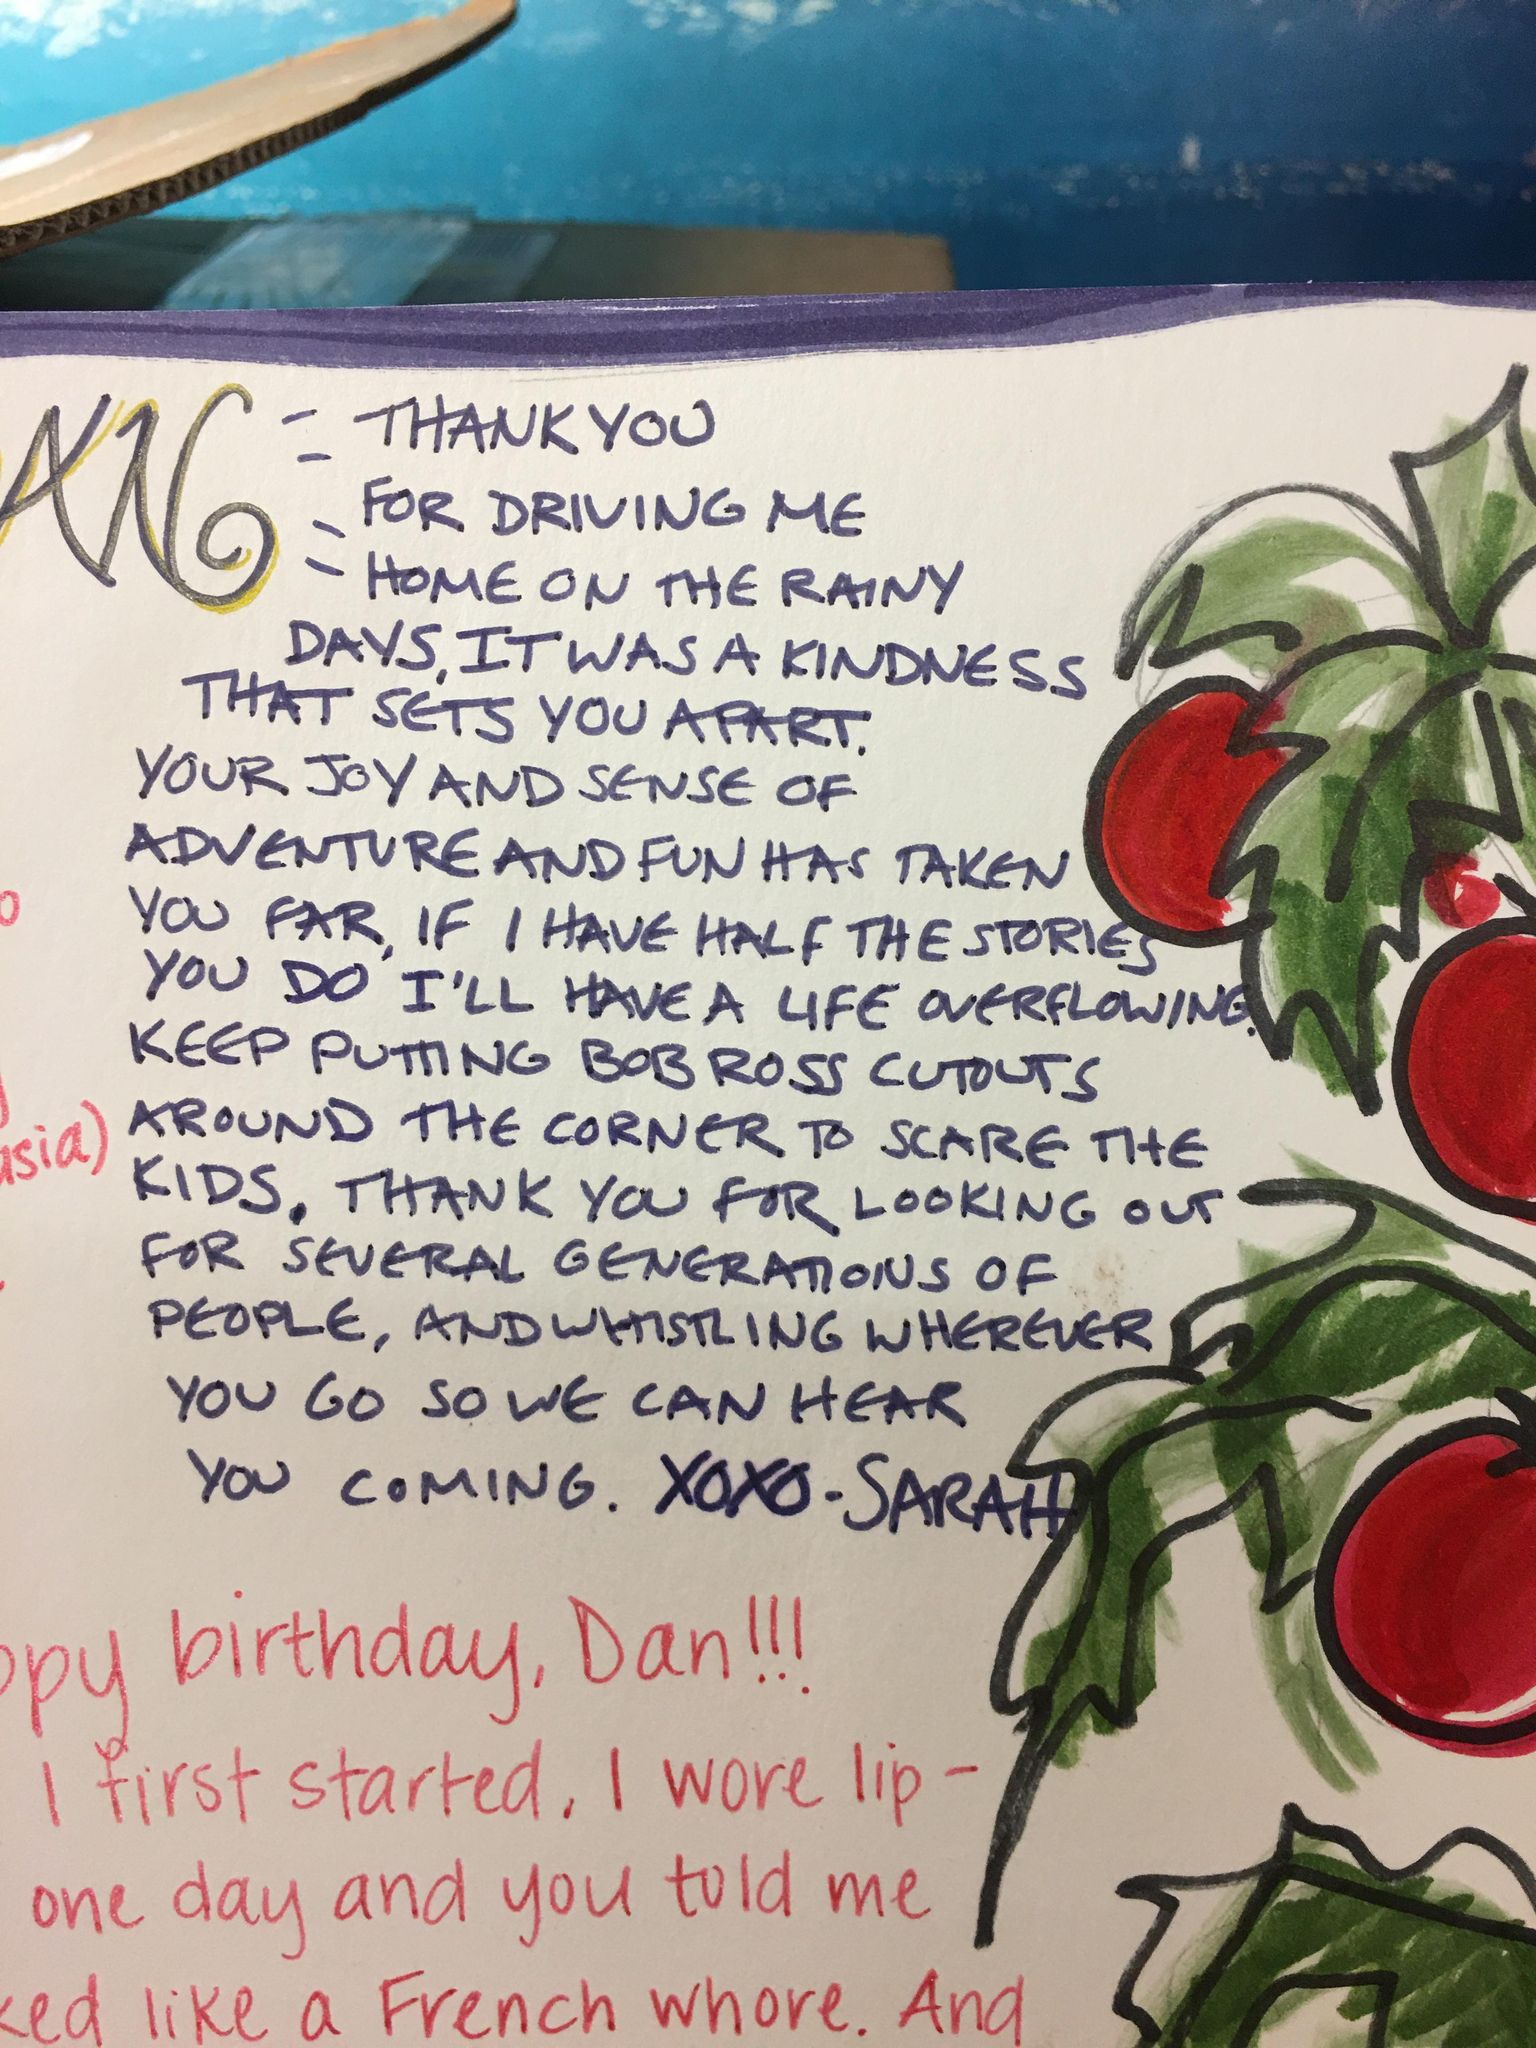 THANK YOU
FOR DRIVING ME
HOME ON THE RAINY
DAYS, IT WAS A KINDNESS
THAT SETS YOU APART.
YOUR JOY AND SENSE OF
ADVENTURE AND FUN HAS TAKEN
YOU FAR, IF I HAVE HALF THE STORIES
YOU DO I'LL HAVE A LIFE OVERFLOWING.
KEEP PUTTING BOB ROSS CUTOUTS
AROUND THE CORNER TO SCARE THE
KIDS. THANK YOU FOR LOOKING OUT
FOR SEVERAL GENERATIONS OF
PEOPLE, AND WHISTLING WHEREVER
YOU GO SO WE CAN HEAR
YOU COMING. XOXO-SARAH
birthday, Dan!!!
I first started, I wore lip-
one day and you told me
like a French whore. And